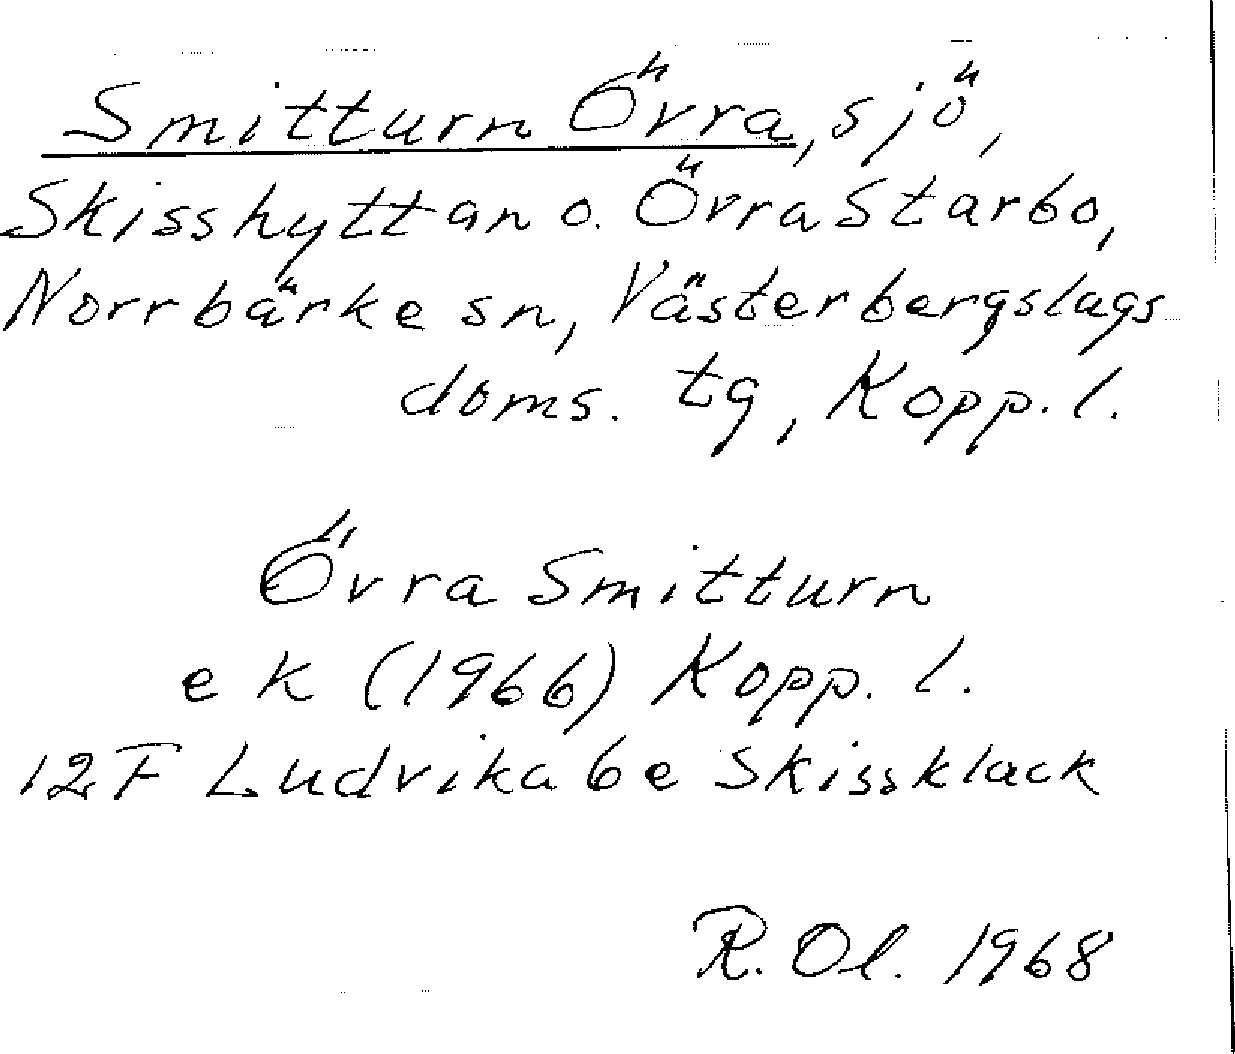 Smitturn Övra, sjö,
Skisshyttan o. Övra Starbo,
Norrbärke sn, Västerbergslags
doms. tg, Kopp. l.
Övra Smitturn
e k (1966) Kopp. l.
12F Ludvika 6e Skissklack
R. Ol. 1968